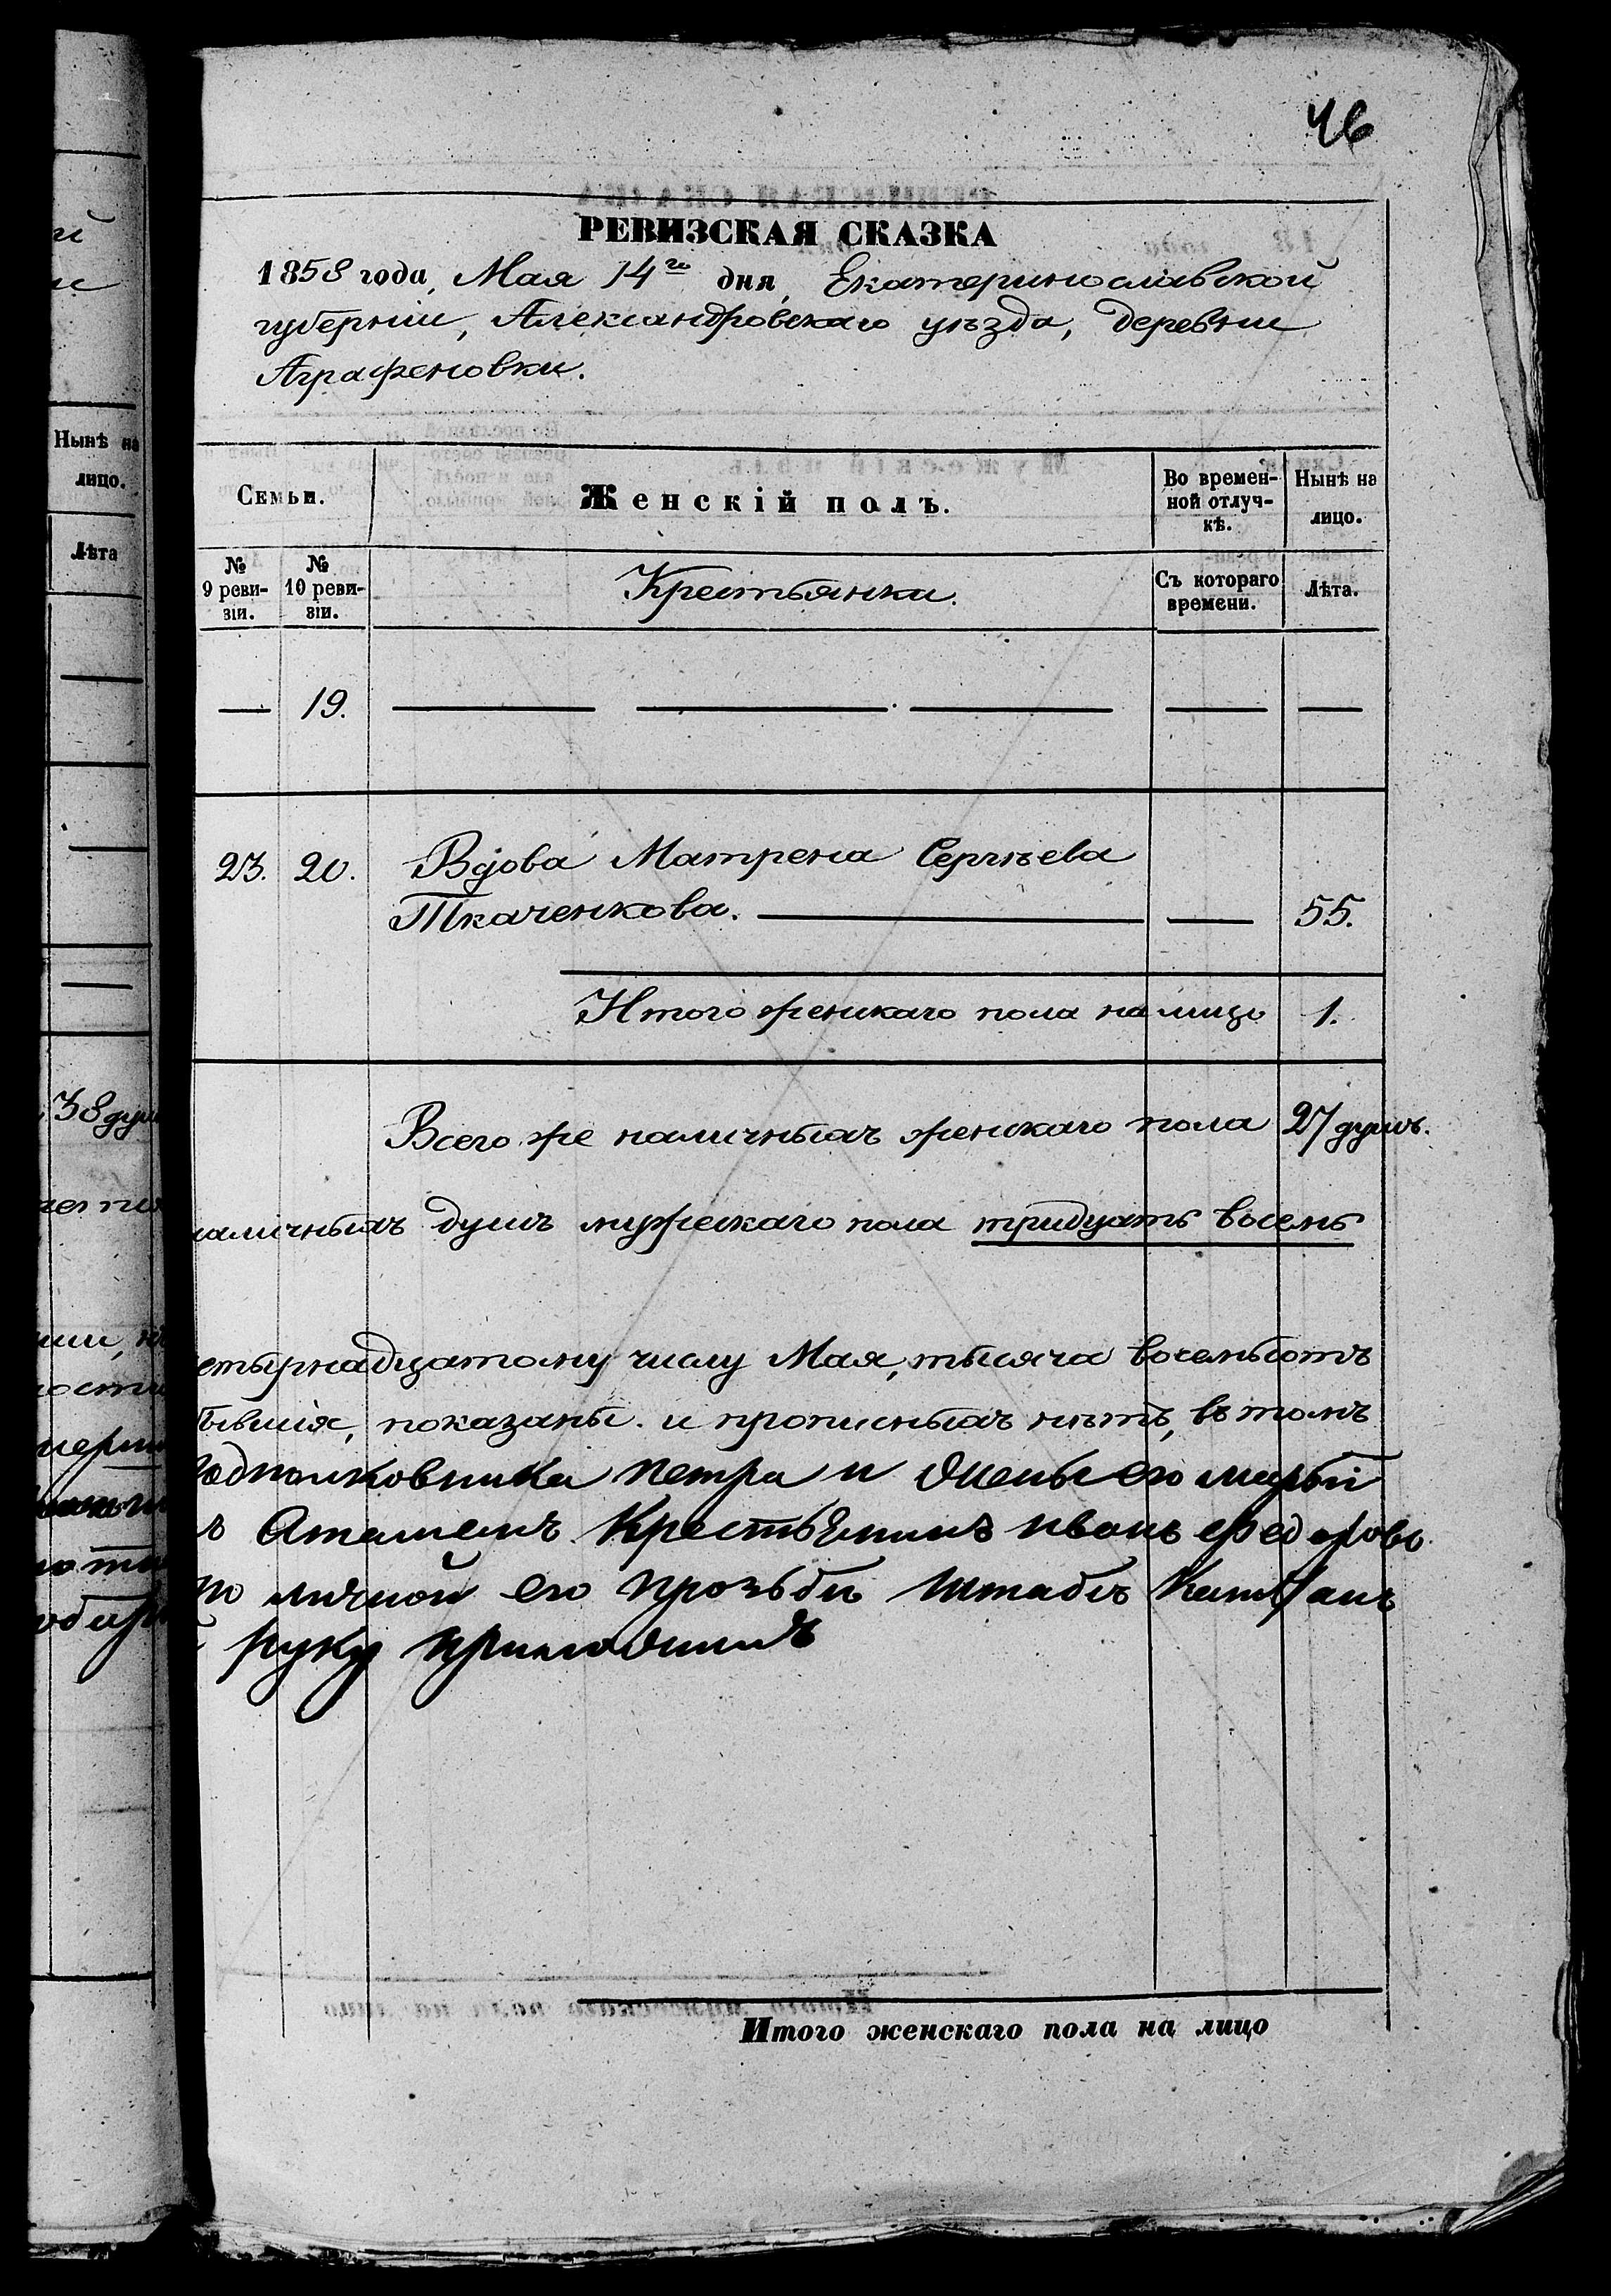 46
РЕВИЗСКАЯ СКАЗКА
1858 года, Мая 14го дня, Екатеринославской
губернии, Александровскаго уѣзда, деревни
Аграфеновки.
Нынѣ на
лицо.
Лѣта
Семьи.
Женскій полъ.
Во времен-
ной отлуч-
кѣ.
Нынѣ на
лицо.
№
9 реви-
зіи.
№
10 реви-
зіи.
Крестьянки.
Съ котораго
времени.
Лѣта.
— 19. — — — — —
23. 20. Вдова Матрена Сергѣева
Ткаченкова. — — 55.
Итого женскаго пола на лицо 1.
38 душ
Всего же наличныхъ женскаго пола 27 душъ.
наличныхъ душъ мужескаго пола тридцать восемь
етырнадцатому числу Мая, тысяча восемьсотъ
бывшія, показаны. и прописныхъ нѣтъ, въ томъ
подполковника петра и жены его марьи
ъ Атаманъ Крестьянинъ иванъ федоровъ
по личной его прозьбѣ штабсъ Капитанъ
руку приложилъ
Итого женскаго пола на лицо